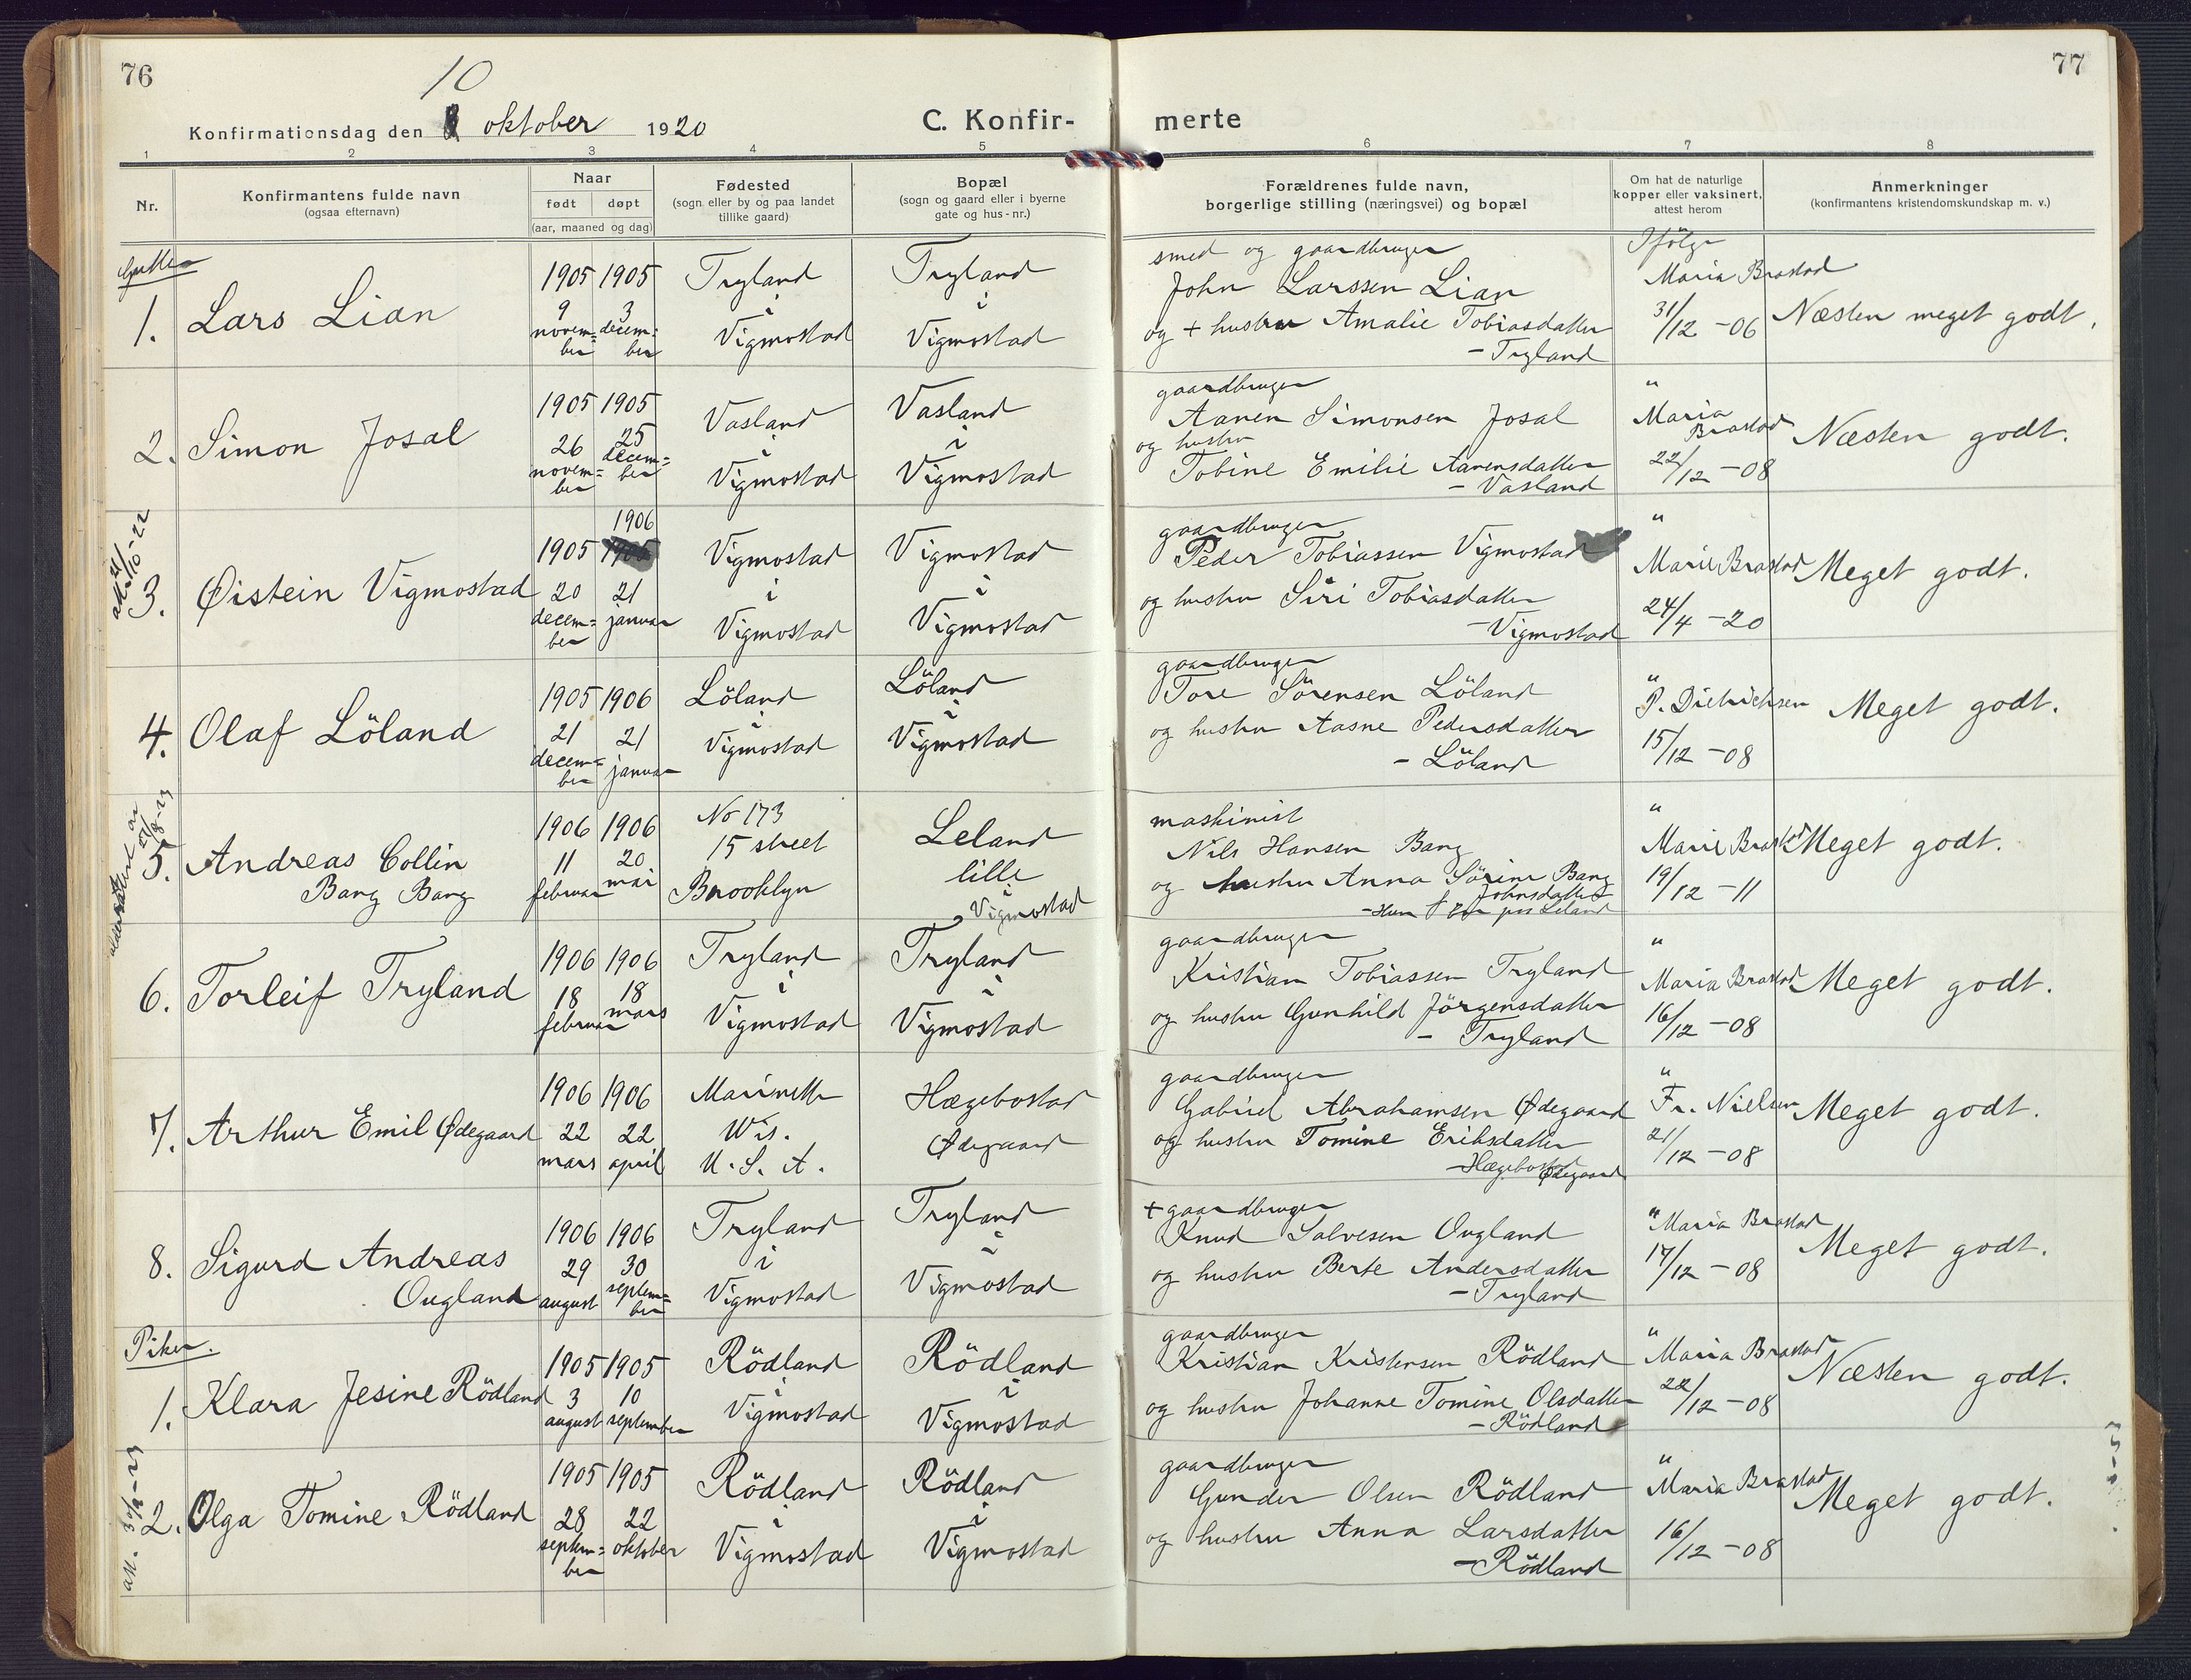 76
77
10
Konfirmationsdag den oktober 1920
C. Konfir-
merte
1 2 3 4 5 6 7 8
Nr.
Konfirmantens fulde navn
(ogsaa efternavn)
Naar
født døpt
(aar, maaned og dag)
Fødested
(sogn eller by og paa landet
tillike gaard)
Bopæl
(sogn og gaard eller i byerne
gate og hus-nr.)
Forældrenes fulde navn,
borgerlige stilling (næringsvei) og bopæl
Om hat de naturlige
kopper eller vaksinert,
attest herom
Anmerkninger
(konfirmantens kristendomskundskap m. v.)
Gutter
1. Lars Lian
1905 9 novem=ber
1905 3 decem=ber
Tryland
i
Vigmostad
Tryland
i
Vigmostad
smed og gaardbruger
John Larssen Lian
og + hustru Amalie Tobiasdatter
- Tryland
Ifölge
Maria Brastad
31/12 - 06
Næsten meget godt.
2. Simon Josal
1905 26 novem=ber
1905 25 decem=ber
Vasland
i
Vigmostad
Vasland
i
Vigmostad
gaardbruger
Aanen Simonsen Josal
og hustru
Tobine Emilie Aanensdatter
- Vasland
"
Maria
Brastad
22/12 - 08
Næsten godt.
att. 21/10-22
3. Øistein Vigmostad
1905 20 decem=ber
1906 21 januar
Vigmostad
i
Vigmostad
Vigmostad
i
Vigmostad
gaardbruger
Peder Tobiassen Vigmostad
og hustru Siri Tobiasdatter
- Vigmostad
"
Marie Brastad
24/4 - 20
Meget godt.
4. Olaf Löland
1905 21 decem=ber
1906 21 januar
Löland
i
Vigmostad
Löland
i
Vigmostad
gaardbruger
Tore Sörensen Löland
og hustru Aasne Pedersdatter
- Löland
"
P. Dietrichsen
15/12 - 08
Meget godt.
5. Andreas Collin
Bang Bang
1906 11 februar
1906 20 mai
No 173
15 street
Brooklyn
Leland
lille
i
Vigmostad
maskinist
Nils Hansen Bang
og hustru Anna Sörine Bang
Johnsdatter
"
Marie Brastad
19/12 - 11
Meget godt.
6. Torleif Tryland
1906 18 februar
1906 18 mars
Tryland
i
Vigmostad
Tryland
i
Vigmostad
gaardbruger
Kristian Tobiassen Tryland
og hustru Gunhild Jörgensdatter
- Tryland
"
Maria Brastad
16/12 - 08
Meget godt.
7. Arthur Emil Ødegaard
1906 22 mars
1906 22 april
Marinette
Wis.
U.S.A.
Hægebostad
Ødegaard
gaardbruger
Gabriel Abrahamsen Ødegaard
og hustru Tomine Eriksdatter
- Hægebostad Ødegaard
"
Fr. Nielsen
21/12 - 08
Meget godt.
8. Sigurd Andreas
Ougland
1906 29 august
1906 30 septem=ber
Tryland
i
Vigmostad
Tryland
i
Vigmostad
+ gaardbruger
Knud Salvesen Ougland
og hustru Berte Andersdatter
- Tryland
" Maria Brastad
17/12 - 08
Meget godt.
Piker.
1. Klara Jesine Rödland
1905 3 august
1905 10 september
Rödland
i
Vigmostad
Rödland
i
Vigmostad
gaardbruger
Kristian Kristensen Rödland
og hustru Johanne Tomine Olsdatter
- Rödland
"
Maria Brastad
22/12 - 08
Næsten godt.
2. Olga Tomine Rödland
1905 28 septem=ber
1905 22 oktober
Rödland
i
Vigmostad
Rödland
i
Vigmostad
gaardbruger
Gunder Olsen Rödland
og hustru Anna Larsdatter
- Rödland
"
Maria Brastad
16/12 - 08
Meget godt.